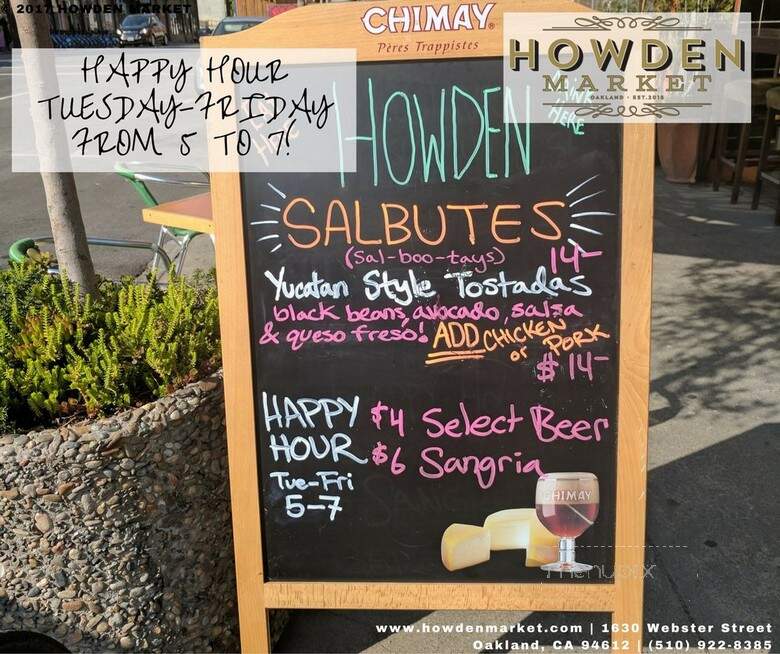 © 2017 HOWDEN MARKET
HAPPY HOUR
TUESDAY-FRIDAY
FROM 5 TO 7!
CHIMAY
Pères Trappistes
HOWDEN
MARKET
OAKLAND • EST. 2015
HOWDEN
HERE
SALBUTES
(Sal-boo-tays) 14-
Yucatan Style Tostadas
black beans, avocado, salsa
& queso freso! ADD CHICKEN
or PORK
$14-
HAPPY $4 Select Beer
HOUR $6 Sangria
Tue-Fri
5-7
CHIMAY
menupix
www.howdenmarket.com | 1630 Webster Street
Oakland, CA 94612 | (510) 922-8385